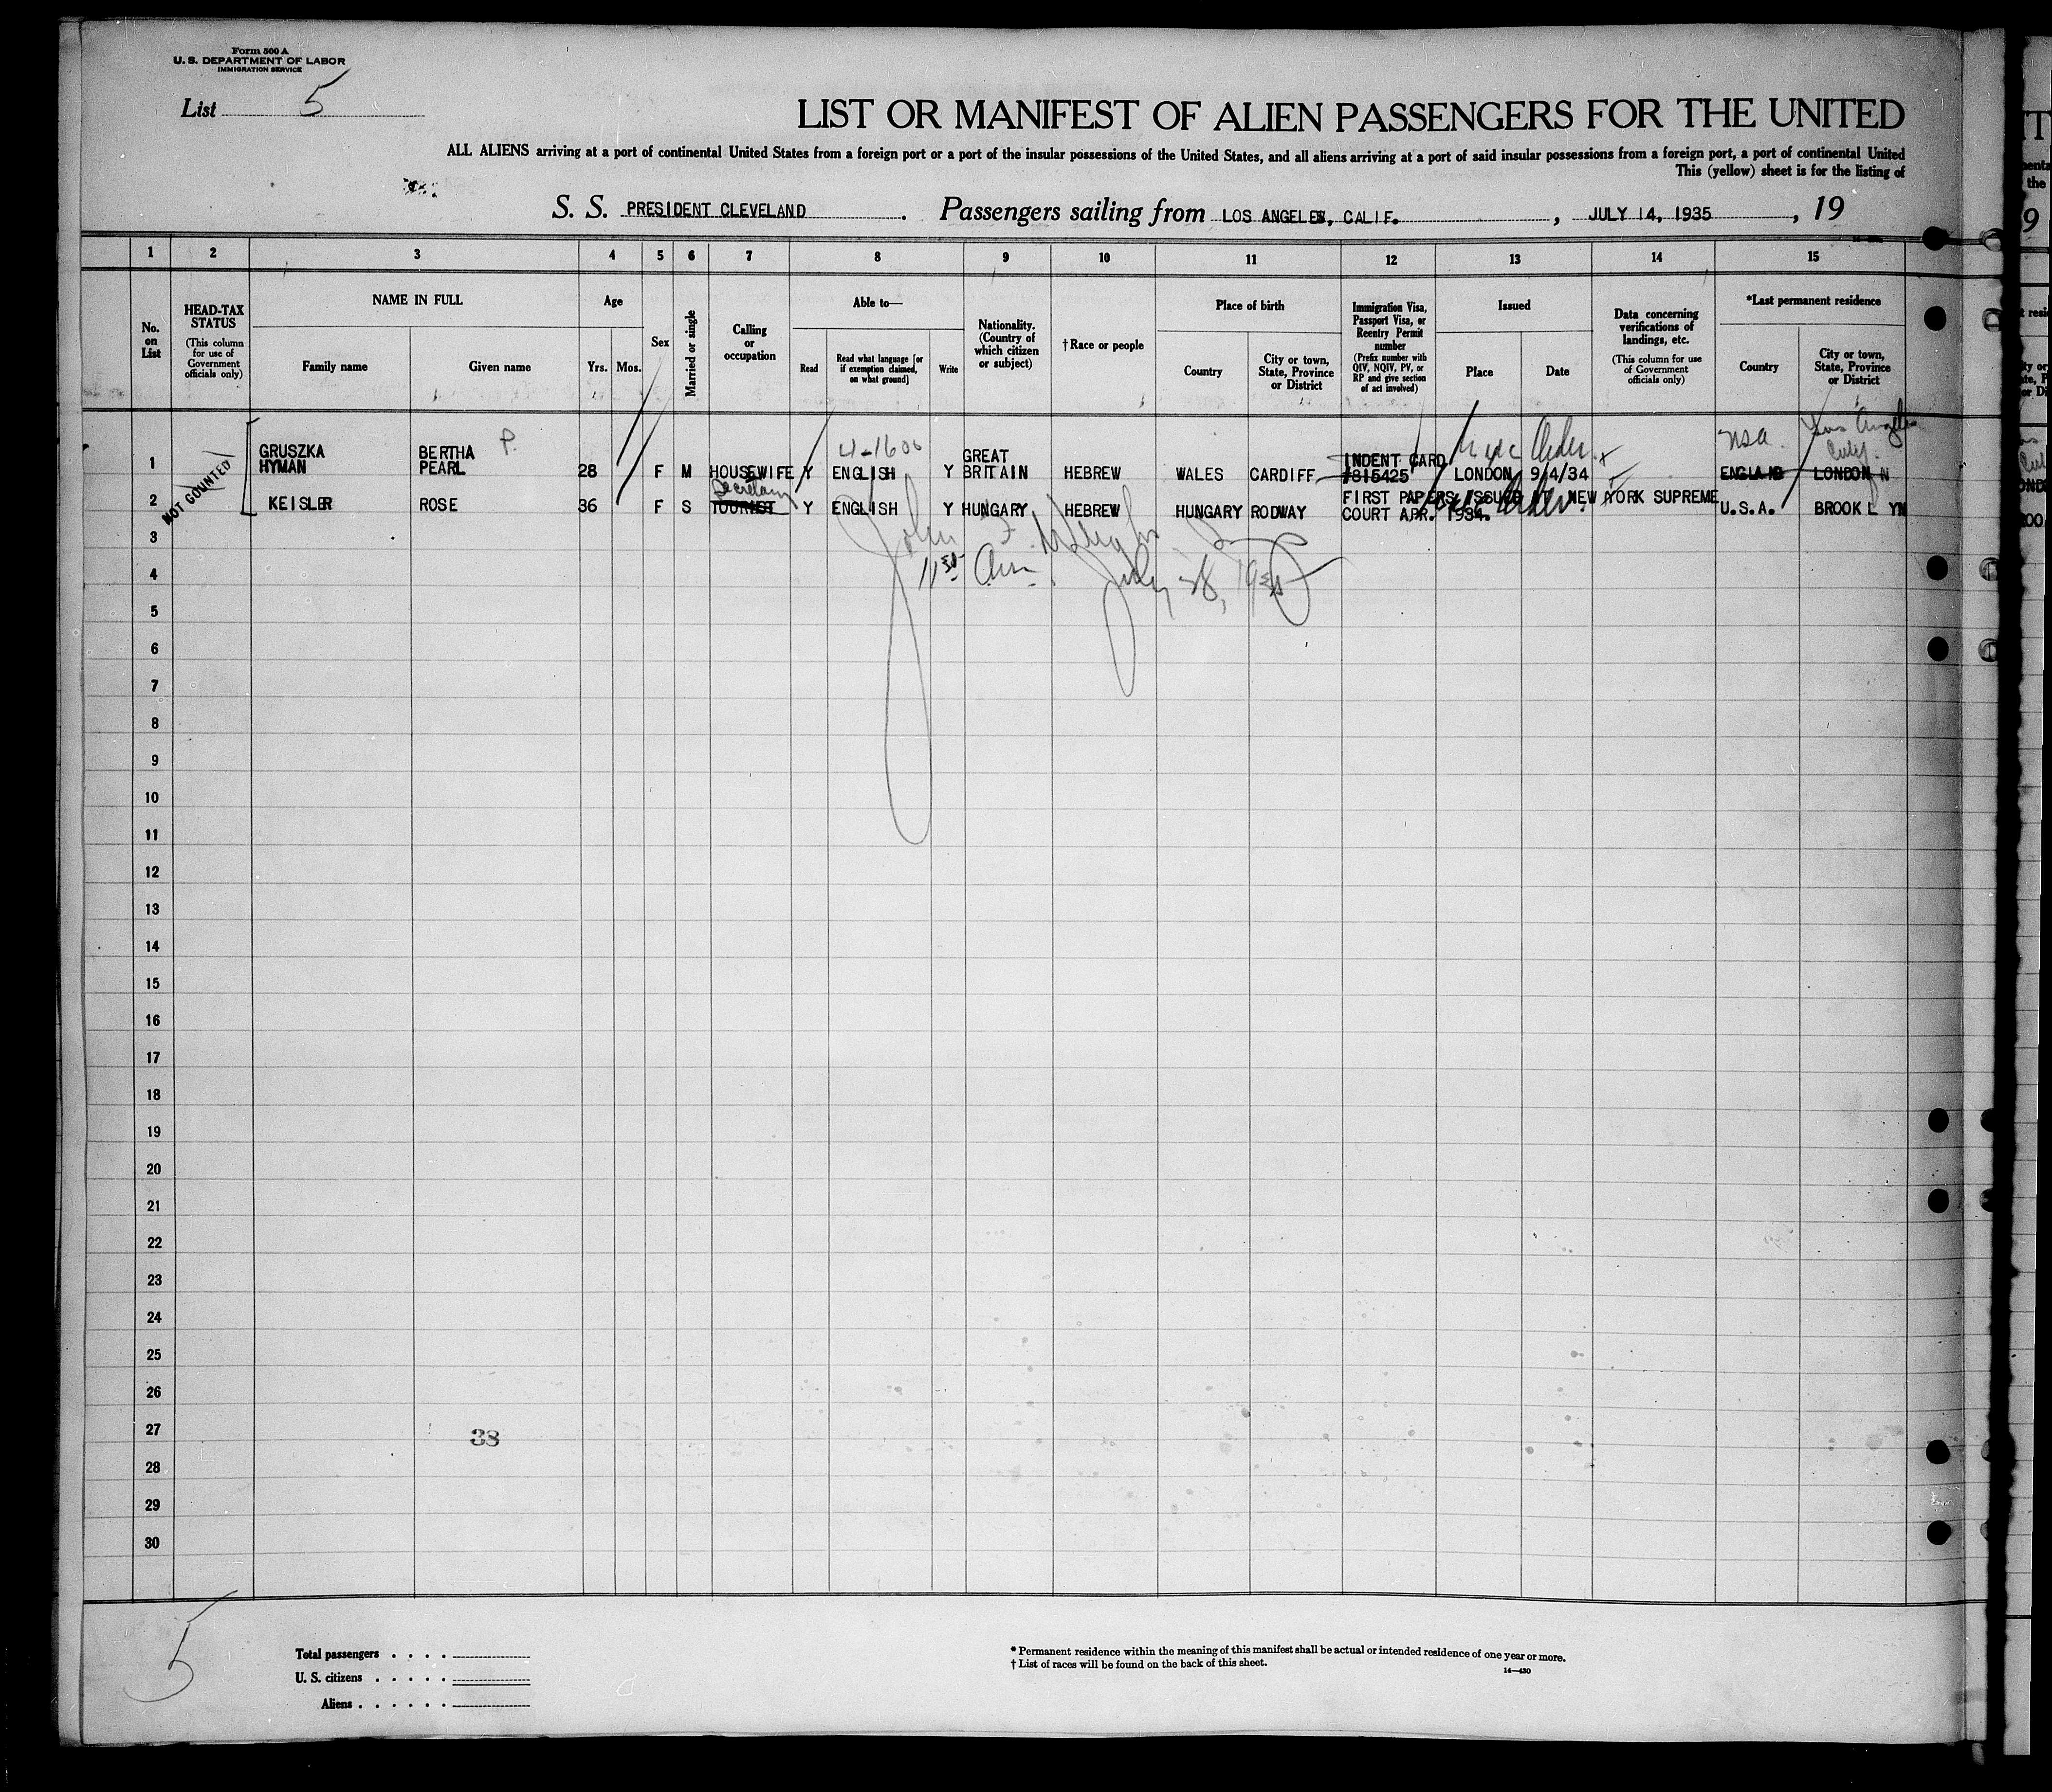 Form 500 A
U. S. DEPARTMENT OF LABOR
IMMIGRATION SERVICE
List 5
LIST OR MANIFEST OF ALIEN PASSENGERS FOR THE UNITED
ALL ALIENS arriving at a port of continental United States from a foreign port or a port of the insular possessions of the United States, and all aliens arriving at a port of said insular possessions from a foreign port, a port of continental United
This (yellow) sheet is for the listing of
S. S. PRESIDENT CLEVELAND. Passengers sailing from LOS ANGELES, CALIF., JULY 14, 1935, 19
1 2 3 4 5 6 7 8 9 10 11 12 13 14 15
No. on List
HEAD-TAX STATUS
(This column for use of Government officials only)
NAME IN FULL
Family name
Given name
Age
Yrs. Mos.
Sex
Married or single
Calling or occupation
Able to—
Read
Read what language [or if exemption claimed, on what ground]
Write
Nationality. (Country of which citizen or subject)
†Race or people
Place of birth
Country
City or town, State, Province or District
Immigration Visa, Passport Visa, or Reentry Permit number
(Prefix number with QIV, NQIV, PV, or RP and give section of act involved)
Issued
Place
Date
Data concerning verifications of landings, etc.
(This column for use of Government officials only)
*Last permanent residence
Country
City or town, State, Province or District
NOT COUNTED
4-1600
USA. Los Angeles
Calif.
GRUSZKA BERTHA P. GREAT INDENT CARD
1 HYMAN PEARL 28 F M HOUSEWIFE Y ENGLISH Y BRITAIN HEBREW WALES CARDIFF #815425 LONDON 9/4/34 ENGLAND LONDON N
Secretary
FIRST PAPERS ISSUED NEW YORK SUPREME
2 KEISLER ROSE 36 F S TOURIST Y ENGLISH Y HUNGARY HEBREW HUNGARY RODWAY COURT APR. 1934. U.S.A. BROOKLYN
John F.
11 30 Am. July 28, 1935
3
4
5
6
7
8
9
10
11
12
13
14
15
16
17
18
19
20
21
22
23
24
25
26
27
38
28
29
30
5
Total passengers
U. S. citizens
Aliens
* Permanent residence within the meaning of this manifest shall be actual or intended residence of one year or more.
† List of races will be found on the back of this sheet.
14—430